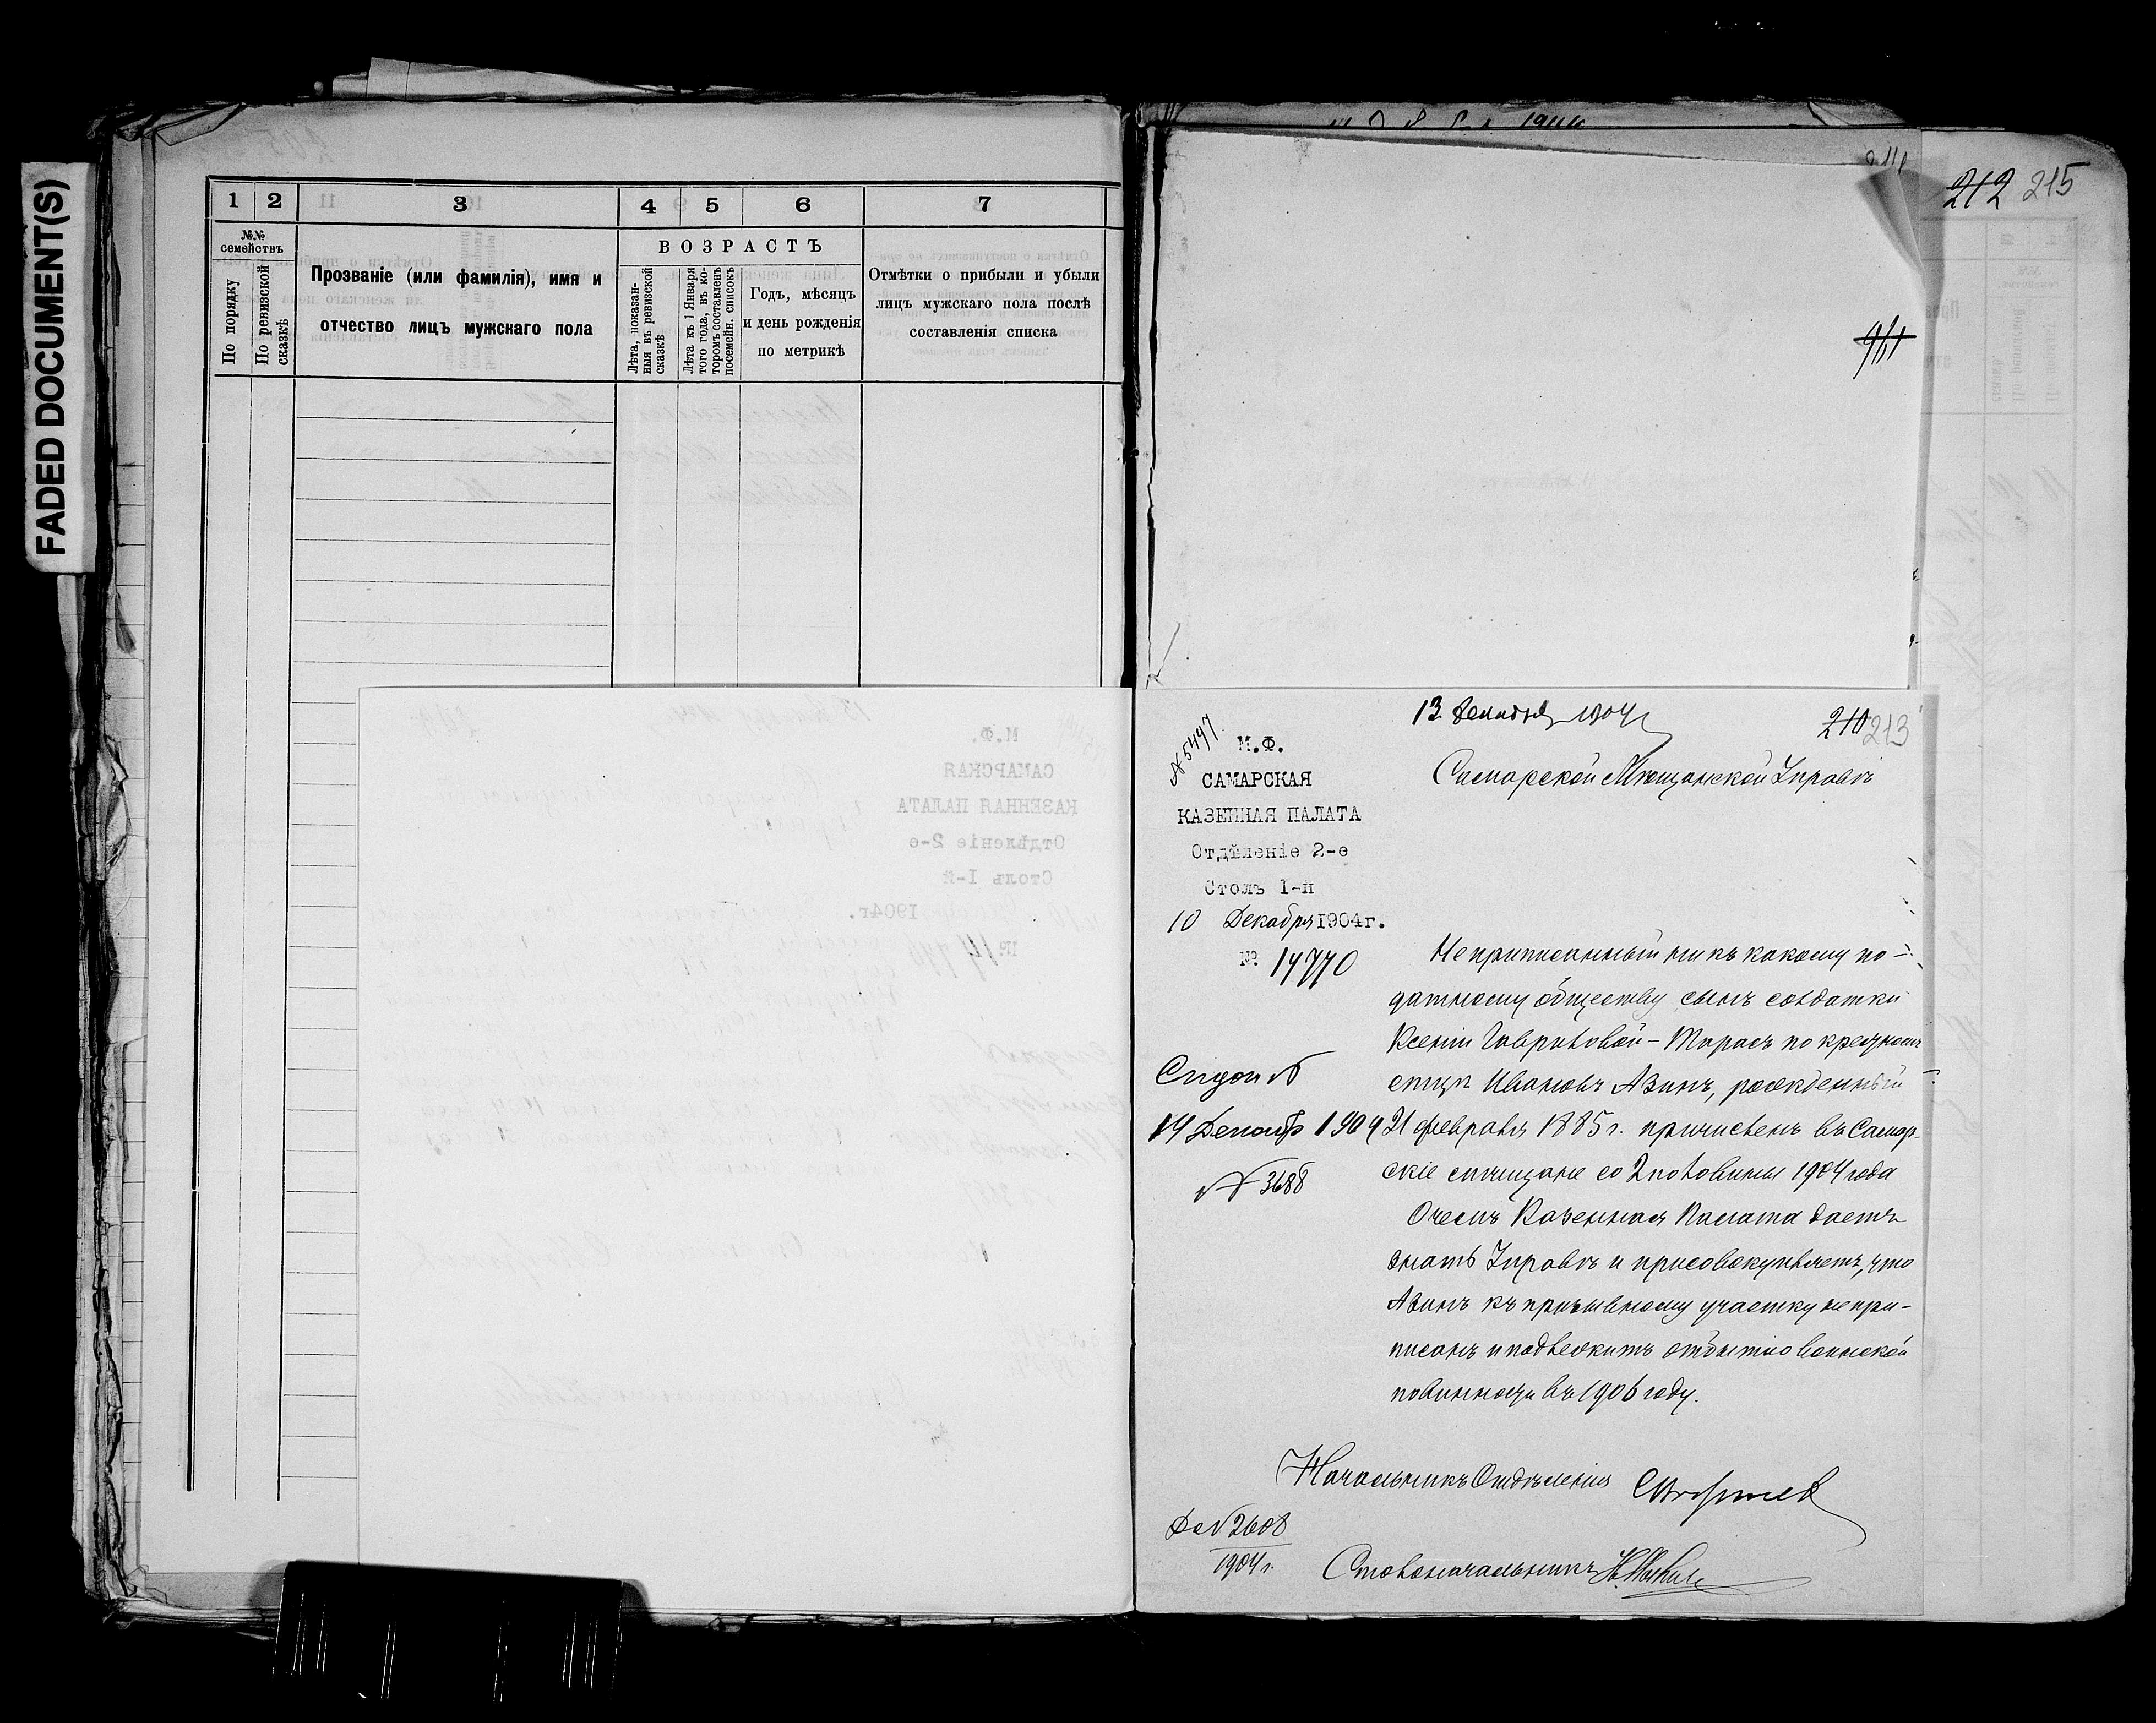 FADED DOCUMENT(S)
1 2 3 4 5 6 7
№№ семействъ
По порядку
По ревизской сказкѣ
Прозваніе (или фамилія), имя и
отчество лицъ мужскаго пола
ВОЗРАСТЪ
Лѣта, показан-
ныя въ ревизской
сказкѣ
Лѣта къ 1 Января
того года, въ ко-
торомъ составленъ
посемейн. списокъ
Годъ, мѣсяцъ
и день рожденія
по метрикѣ
Отмѣтки о прибыли и убыли
лицъ мужскаго пола послѣ
составленія списка
212 215
211
13 Декабря 1904 г
210 213
№ 5497.
М.Ф.
САМАРСКАЯ
КАЗЕННАЯ ПАЛАТА
Отдѣленіе 2-е
Столъ I-й
10 Декабря 1904г.
№ 14770
Самарской Мѣщанской Управѣ
Неприписанный ни къ какому по-
датному обществу сынъ солдатки
Ксеніи Гавриловой - Тарасъ по крестному
отцу Ивановъ Азинъ, рожденный
21 февраля 1885 г. причисленъ въ Самар-
скіе мѣщане со 2 половины 1904 года
О чемъ Казенная Палата даетъ
знать Управѣ и присовокупляетъ, что
Азинъ къ призывному участку не при-
писанъ и подлежитъ отбытію воинской
повинности въ 1906 году.
14 Декабр 1904
№ 3688
Начальникъ Отдѣленія
Д. № 2608
1904 г.
Столоначальникъ